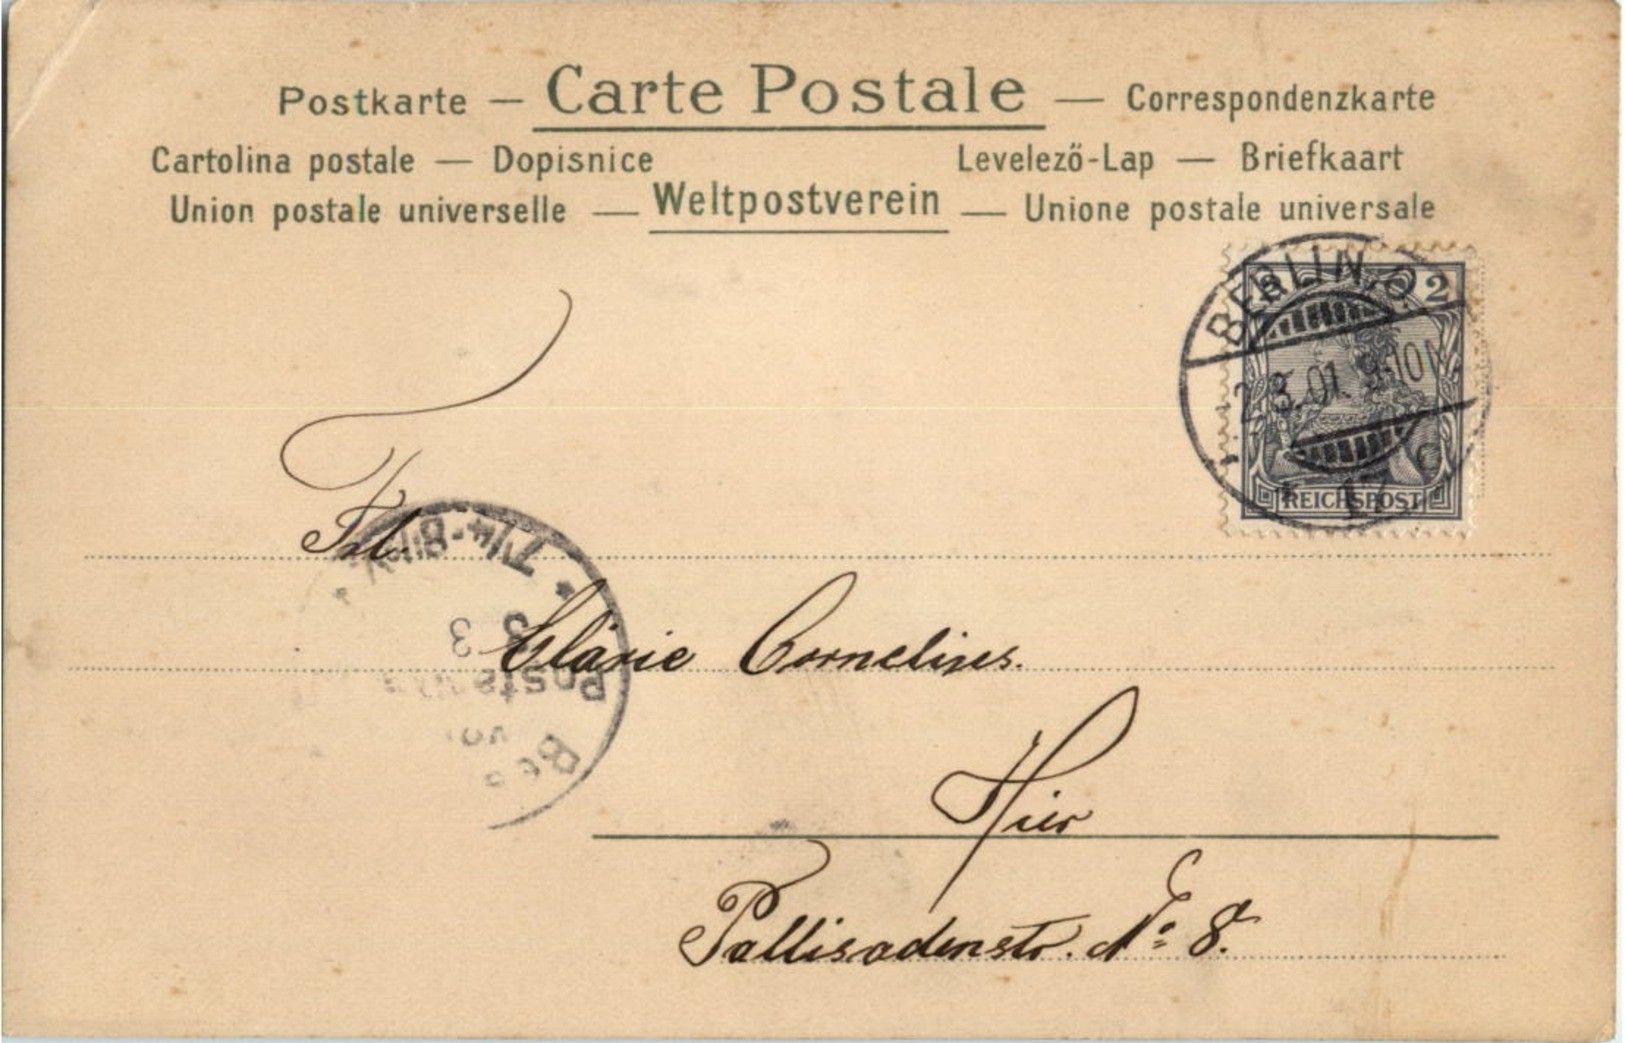 Postkarte — Carte Postale — Correspondenzkarte
Cartolina postale — Dopisnice Levelező-Lap — Briefkaart
Union postale universelle — Weltpostverein — Unione postale universale
BERLIN, O.
2
2.3.01. 9-10N.
* 17 c
REICHSPOST
Frl.
Clärie Cornelius.
3 3
Hier
Pallisadenstr. No 8.